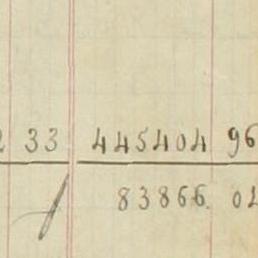 33 445404 96
83866. 02